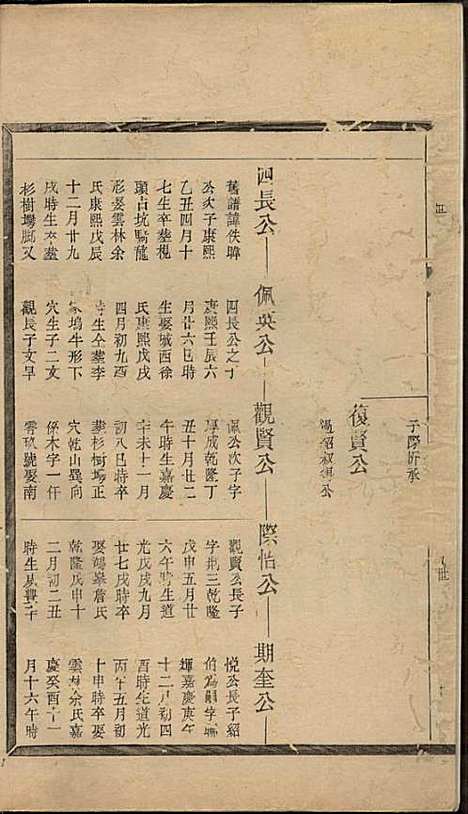 子際昕承
復賢公
四長公 佩英公 觀賢公 際怡公 期奎公
舊譜諱佚暐
公次子康熙
乙丑四月十
七生卒葬槐
頭古坑騎龍
形娶雲林余
氏康熙戊辰
十二月廿九
戌時生卒葬
杉樹塲腳又
四長公之子
康熙壬辰六
月廿六巳時
生娶城西徐
氏康熙戊戌
四月初九酉
時生仝葬李
家塢牛形下
穴生子二文
觀長子文早
佩公次子字
學成乾隆丁
丑十月廿二
午時生嘉慶
辛未十一月
初八巳時卒
葬杉樹塲正
穴乾山巽向
係木字一仟
零玖號娶南
觀賢公長子
字荆三乾隆
戊申五月廿
六午時生道
光戊戌九月
廿七戌時卒
娶鴻皋詹氏
乾隆戊申十
二月初二丑
時生易興二子
悅公長子紹
伯
輝嘉慶庚午
十二月初四
酉時生道光
丙午五月初
十申時卒娶
雲林余氏嘉
慶癸酉十一
月十六午時